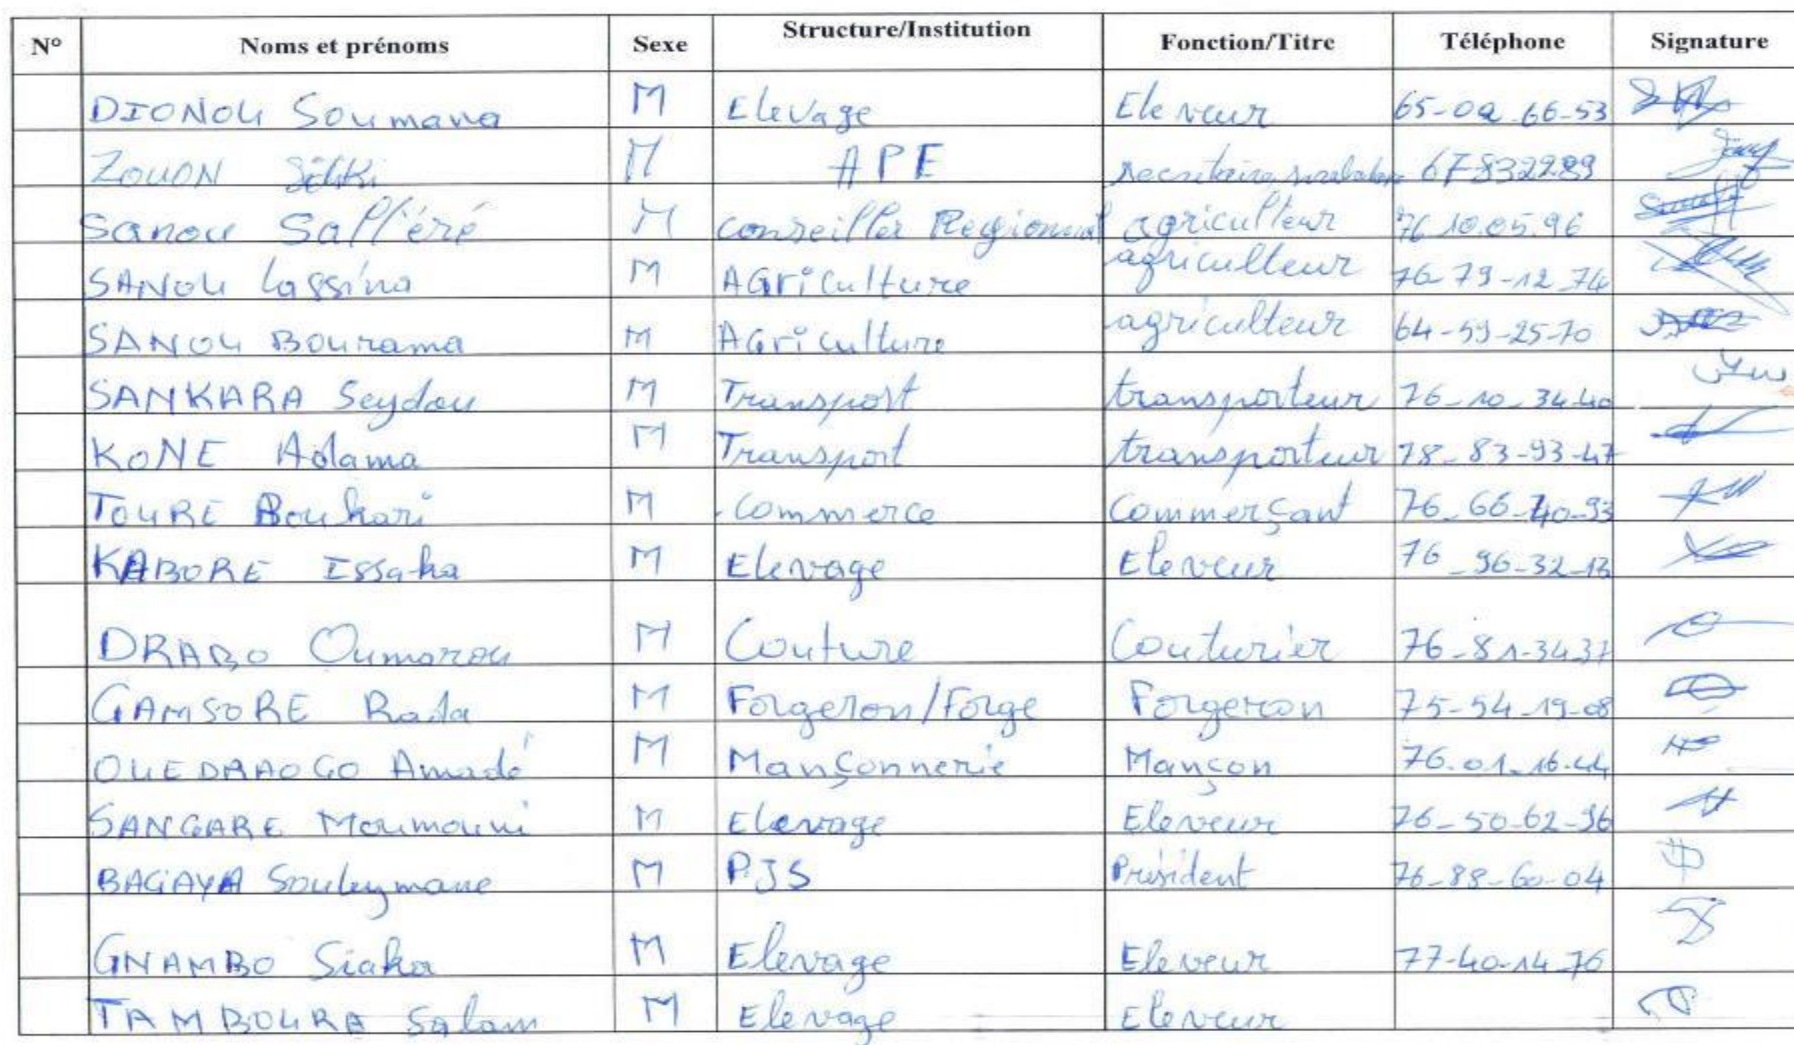 N° Noms et prénoms Sexe Structure/Institution Fonction/Titre Téléphone Signature
DIONOU Soumana M Elevage Eleveur 65-02-66-53
ZOUON M APE 67832289
Sanou Salféré M conseiller Regional agriculteur 76.10.05.96
SANOU Lassina M AGriculture agriculteur 76-79-12-74
SANOU Bourama M AGriculture agriculteur 64-59-25-70
SANKARA Seydou M Transport transporteur 76-10-34-40
KONE Adama M Transport transporteur 78-83-93-47
TOURE Boukari M Commerce Commerçant 76-66-40-93
KABORE Issaka M Elevage Eleveur 76-96-32-13
DRABO Oumarou M Couture Couturier 76-81-34-37
GAMSORE Rada M Forgeron/Forge Forgeron 75-54-19-08
OUEDRAOGO Amadé M Mançonnerie Mançon 76.01.16.44
SANGARE Moumouni M Elevage Eleveur 76-50-62-96
BAGAYA Souleymane M PJS Président 76-88-60-04
GNAMBO Siaka M Elevage Eleveur 77-40-14-76
TAMBOURA Salam M Elevage Eleveur